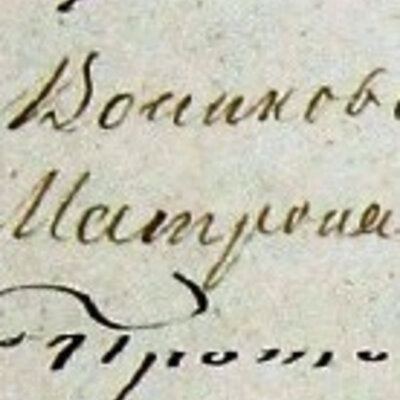 Воликов
Матрона
Прото